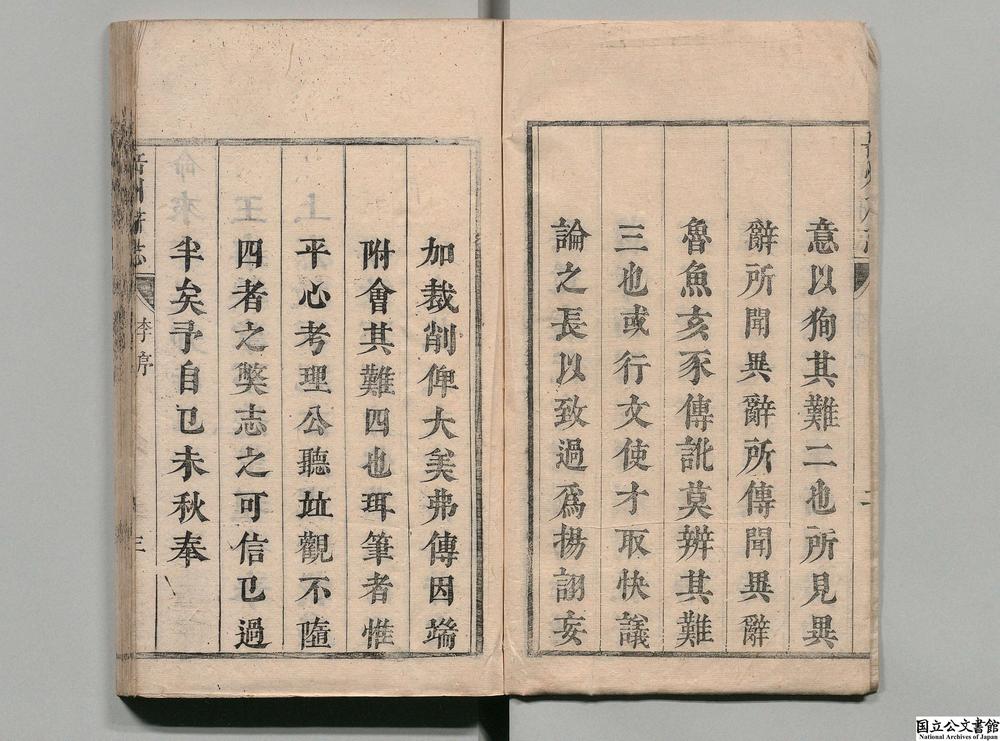 意以狥其難二也所見異
辭所聞異辭所傳聞異辭
魯魚亥豕傳訛莫辨其難
三也或行文使才取快議
論之長以致過爲揚詡妄
加裁削俾大美弗傳因端
附會其難四也珥筆者惟
平心考理公聽竝觀不墮
四者之獘志之可信已過
半矣予自己未秋奉
李序
三
国立公文書館
National Archives of Japan